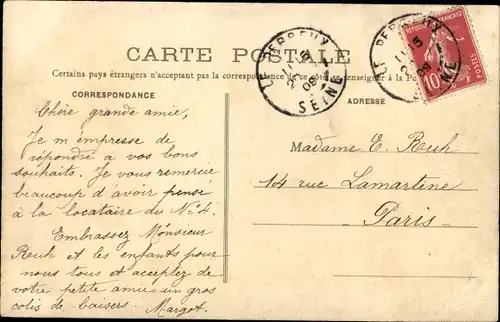 CARTE POSTALE
Certains pays étrangers n'acceptant pas la correspondance de ce côté, se renseigner à la Po
CORRESPONDANCE
ADRESSE
LE PERREUX
09
SEINE
LE PERREUX
NE
REPUBLIQUE FRANÇAISE
POSTES
10
Chère grande amie,
Je m'empresse de
répondre à vos bons
souhaits. Je vous remercie
beaucoup d'avoir pensé
à la locataire du No 4.
Embrassez Monsieur
Ruh et les enfants pour
nous tous et acceptez de
votre petite amie un gros
colis de baisers. Margot.
Madame E. Ruh
14 rue Lamartine
Paris